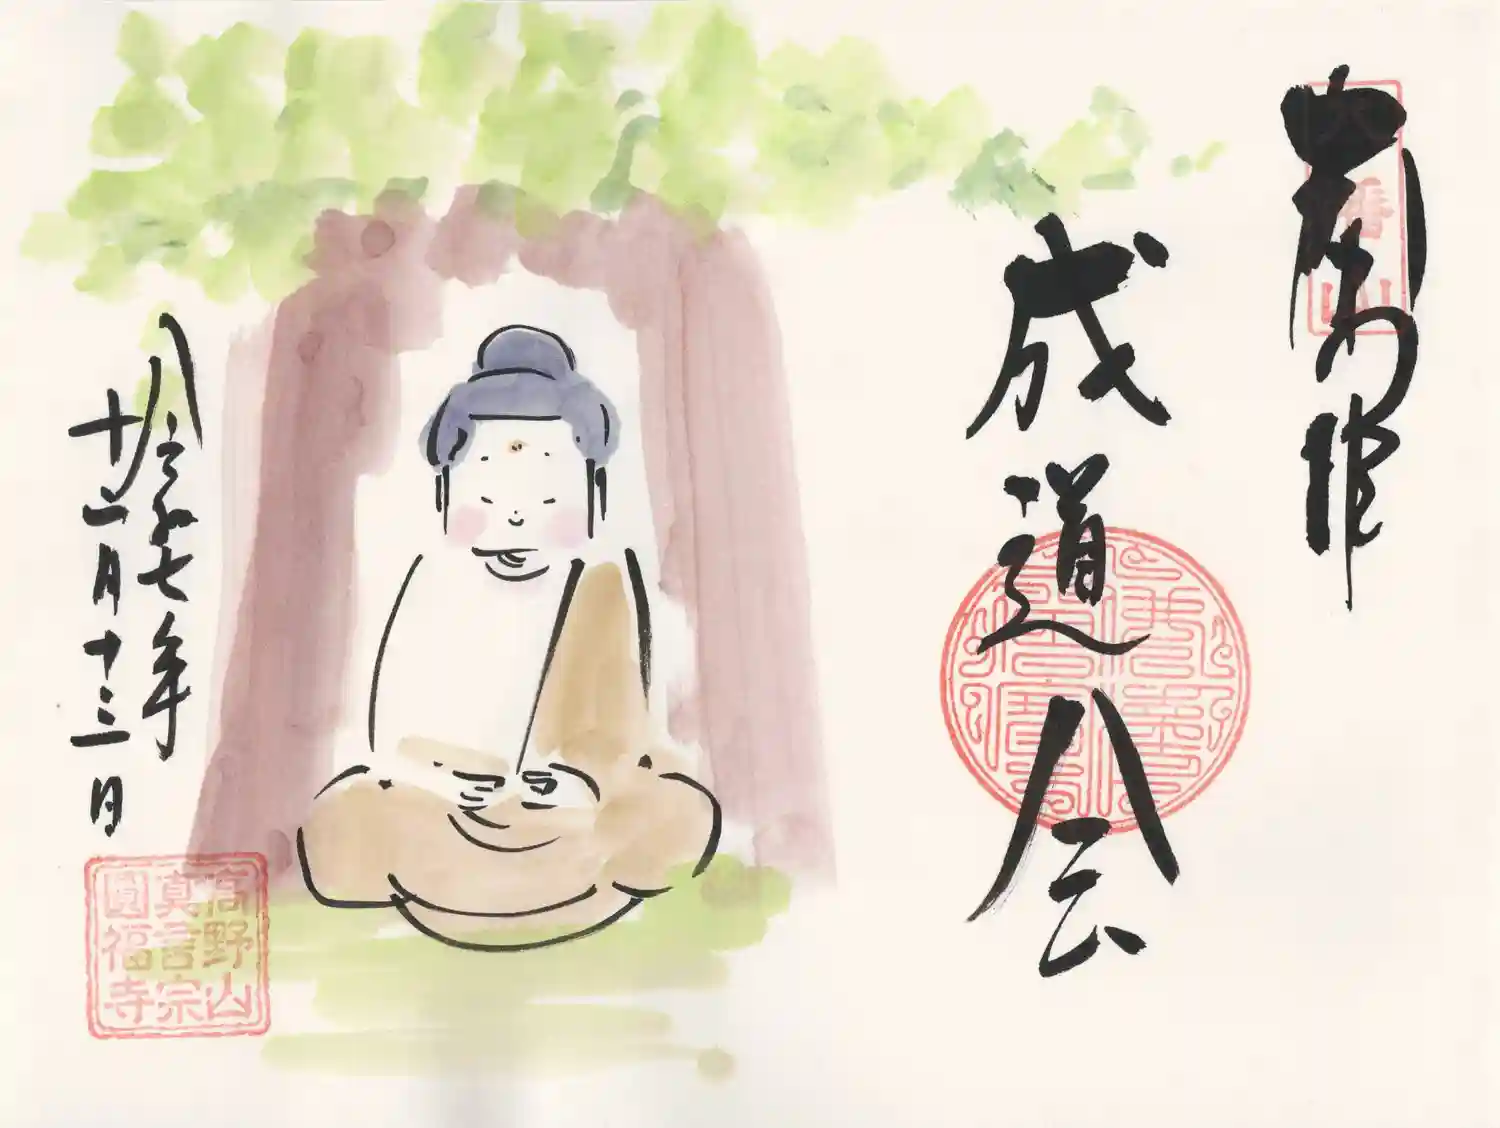 奉拝
成道会
令和七年
十二月十三日
高野山
真言宗
圓福寺